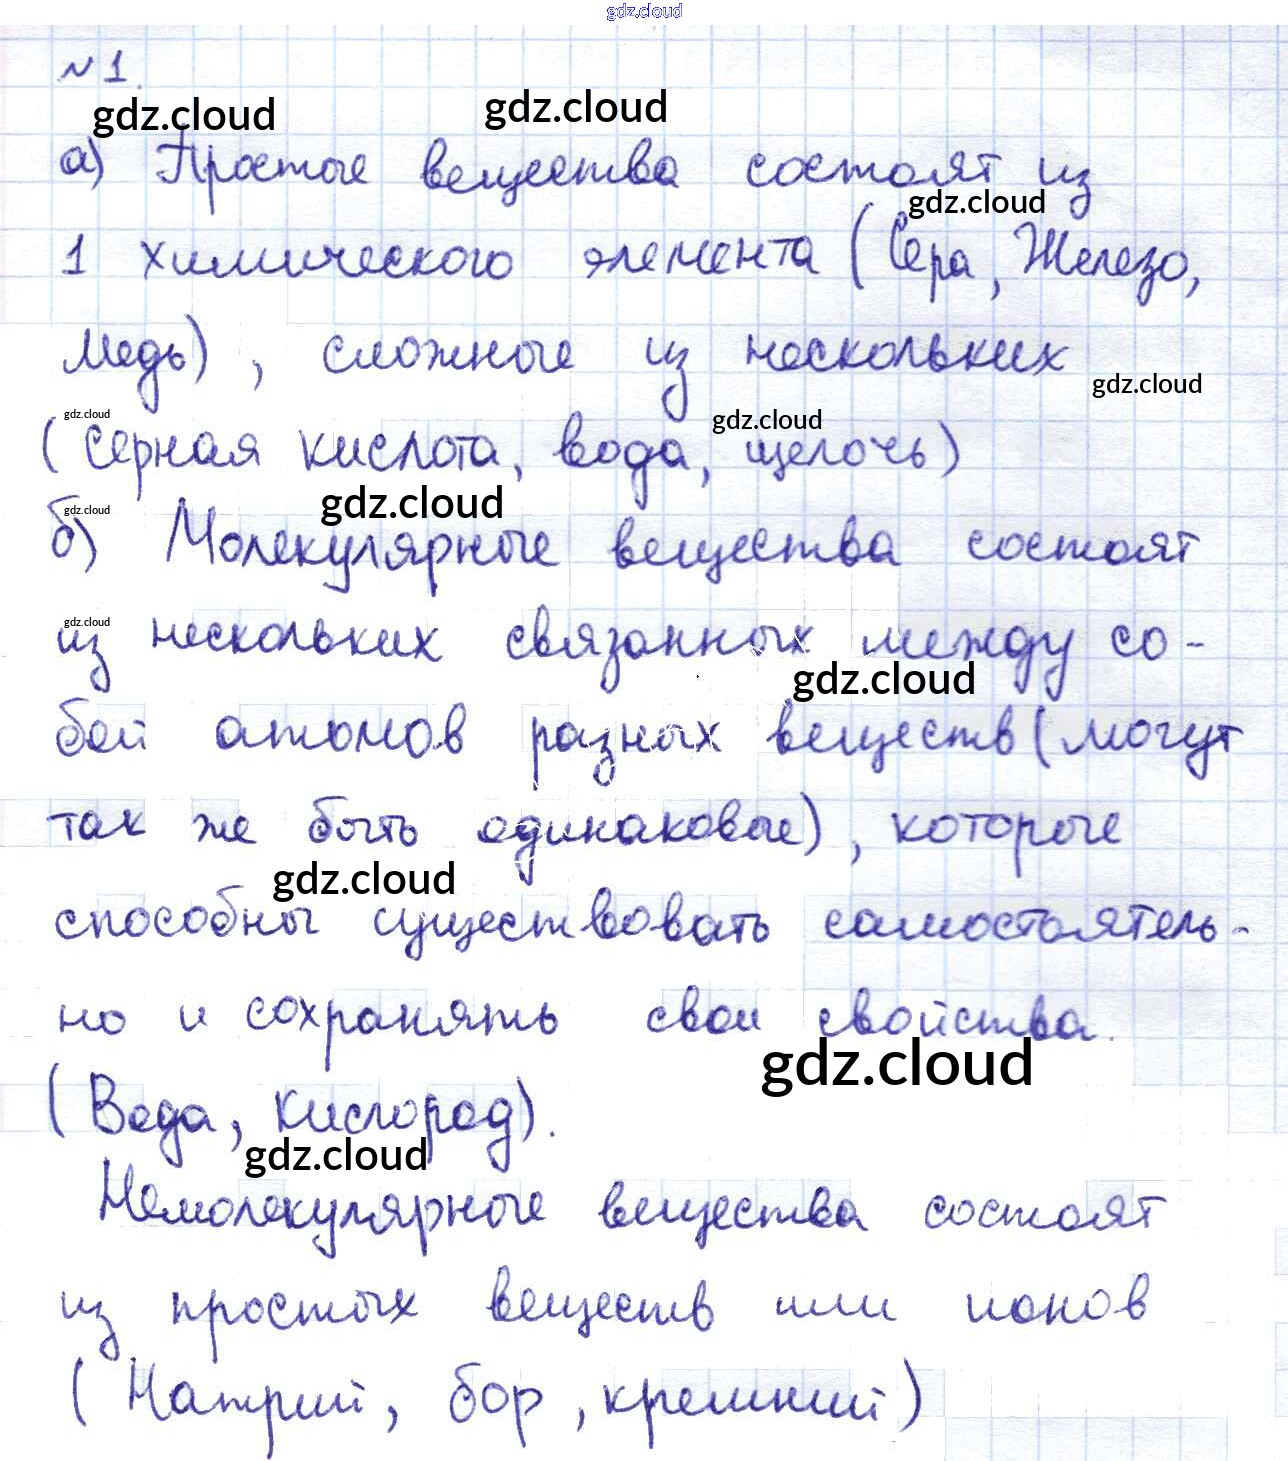 gdz.cloud
№1.
gdz.cloud gdz.cloud
а) Простые вещества состоят из
gdz.cloud
1 химического элемента (Сера, Железо,
медь), сложные из нескольких
gdz.cloud
gdz.cloud gdz.cloud
(серная кислота, вода, щелочь)
gdz.cloud gdz.cloud
б) Молекулярные вещества состоят
gdz.cloud
из нескольких связанных между со-
gdz.cloud
бой атомов разных веществ (могут
так же быть одинаковые), которые
gdz.cloud
способны существовать самостоятель-
но и сохранять свои свойства.
gdz.cloud
(Вода, кислород).
gdz.cloud
Немолекулярные вещества состоят
из простых веществ или ионов
(Натрий, бор, кремний)